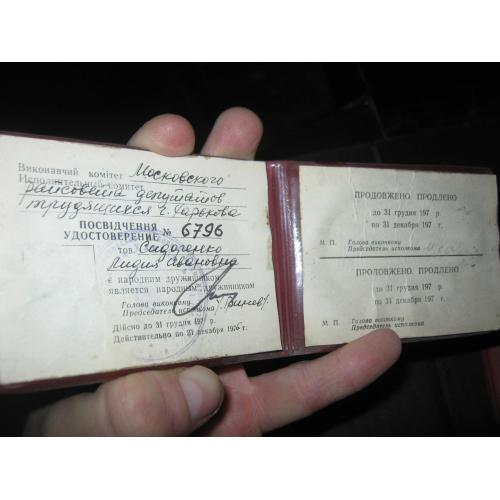 Виконавчий комітет Московского
Исполнительный комитет
райсовета депутатов
трудящихся г. Харькова
ПОСВІДЧЕННЯ
УДОСТОВЕРЕНИЕ № 6796
тов. Сидоренко
Лидия Ивановна
є народним дружинником
является народным дружинником
Голова виконкому
Председатель исполкома
Дійсно до 31 грудня 197 р.
Действительно по 31 декабря 1976 г.
ПРОДОВЖЕНО. ПРОДЛЕНО
до 31 грудня 197 р.
по 31 декабря 197 г.
М П. Голова виконкому
Председатель исполкома
ПРОДОВЖЕНО. ПРОДЛЕНО
до 31 грудня 197 р.
по 31 декабря 197 г.
М П. Голова виконкому
Председатель исполкома